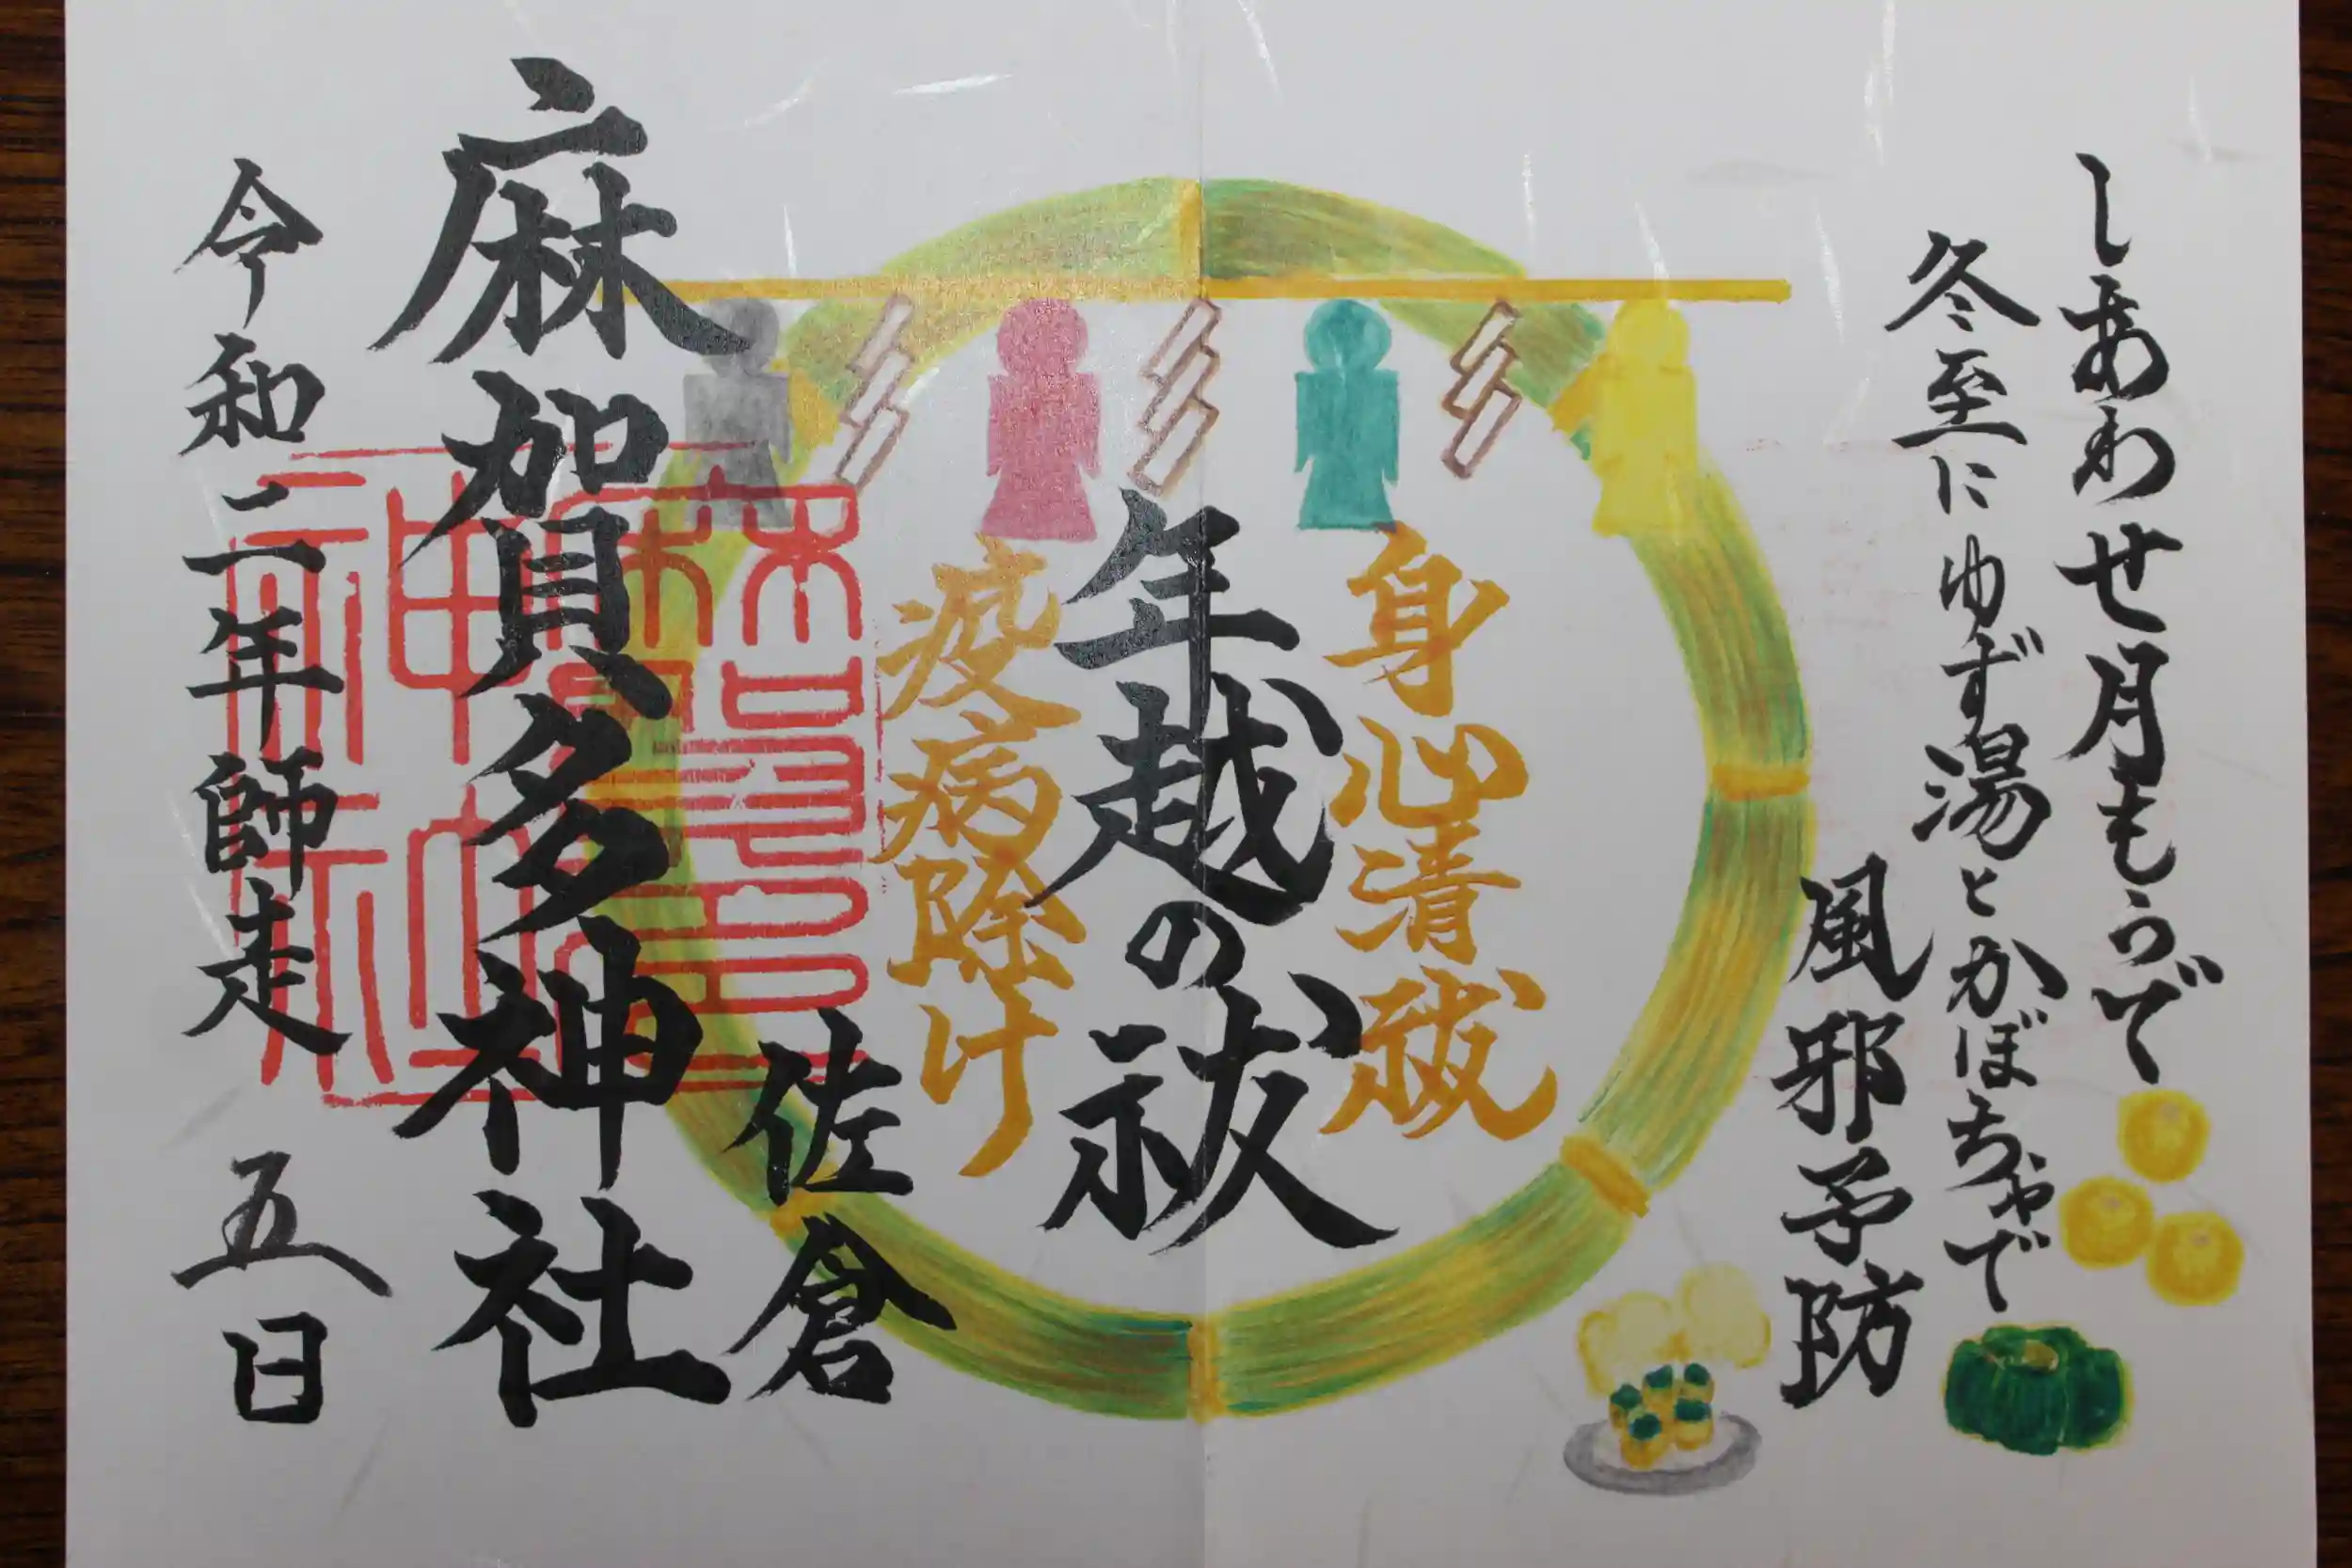 しあわせ月もうで
冬至にゆず湯とかぼちゃで
風邪予防
身心清祓
年越の祓
疫病除け
佐倉
麻賀多神社
令和二年師走五日